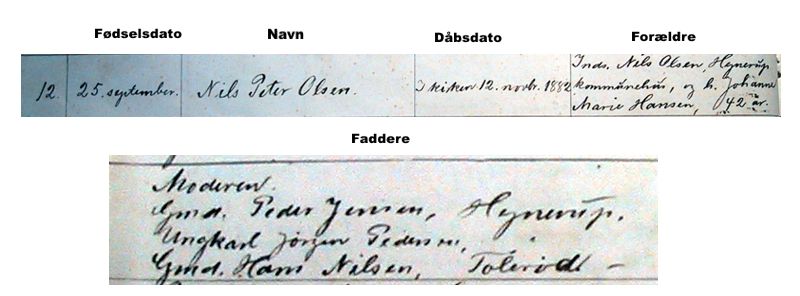 Fødselsdato Navn Dåbsdato Forældre
12. 25. september. Nils Peter Olsen. I kirken 12. novbr. 1882
Inds. Nils Olsen, Hynerup
kommunehus, og h. Johanne
Marie Hansen, 42 år.
Faddere
Moderen.
Gmd. Peder Jensen, Hynerup.
Ungkarl Jørgen Pedersen,
Gmd. Hans Nilsen, Tolerød